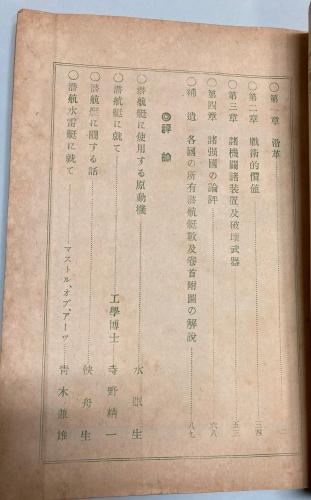 〇第一章 沿革……一
〇第二章 戰術的價値……三四
〇第三章 諸機關諸裝置及破壞武器……五三
〇第四章 諸强國の論評……六八
〇補遺 各國の所有潜航艇數及卷首附圖の解說……八九
◎評論
〇潜航艇に使用する原動機……水獃生
〇潜航艇に就て……工學博士 寺野精一
〇潜航艇に關する話……快舟生
〇潜航水雷艇に就て……マストル、オブ、アーツ 青木兼雄